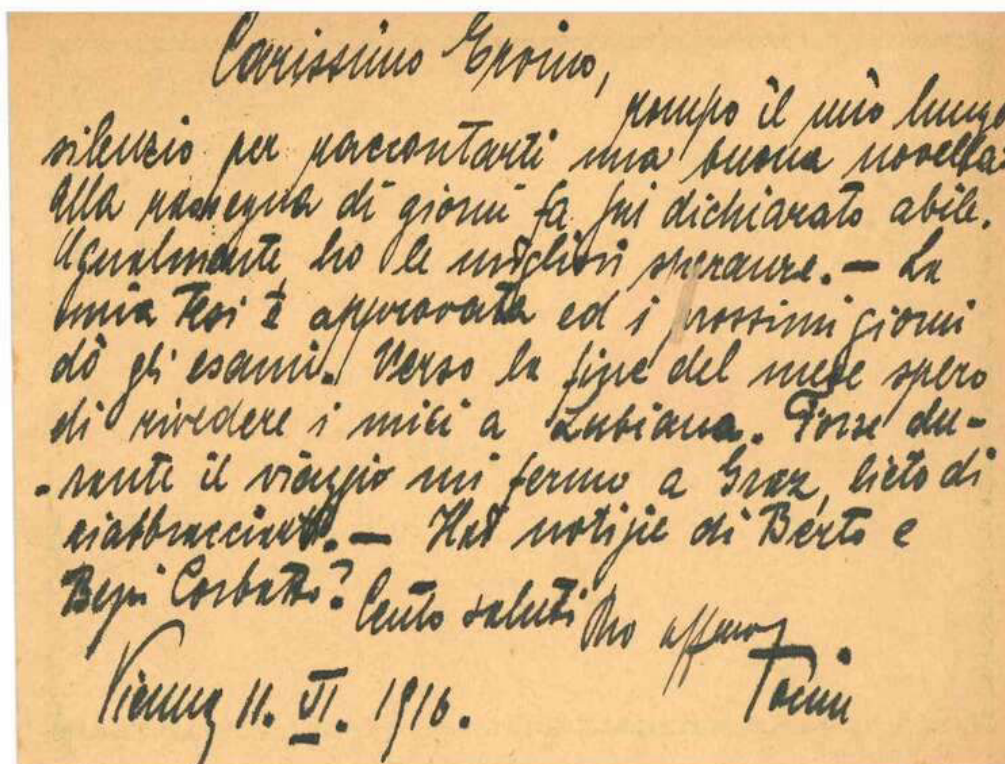 Carissimo Eroino,
rompo il mio lungo
silenzio per raccontarti una buona novella:
alla rassegna di giorni fa fui dichiarato abile.
Ugualmente ho le migliori speranze. — La
mia tesi è approvata ed i prossimi giorni
dò gli esami. Verso la fine del mese spero
di rivedere i miei a Lubiana. Forse du-
-rante il viaggio mi fermo a Graz, lieto di
riabbracciarti. — Hai notizie di Berto e
Bepi Corbatto? Cento saluti tuo affmo
Vienna 11. VI. 1916.